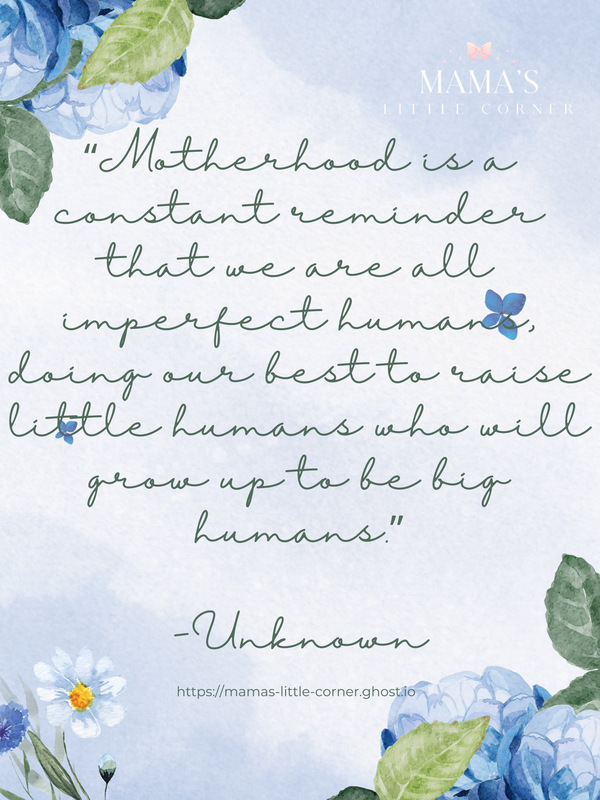 MAMA'S
LITTLE CORNER
"Motherhood is a
constant reminder
that we are all
imperfect humans,
doing our best to raise
little humans who will
grow up to be big
humans."
-Unknown
https://mamas-little-corner.ghost.io